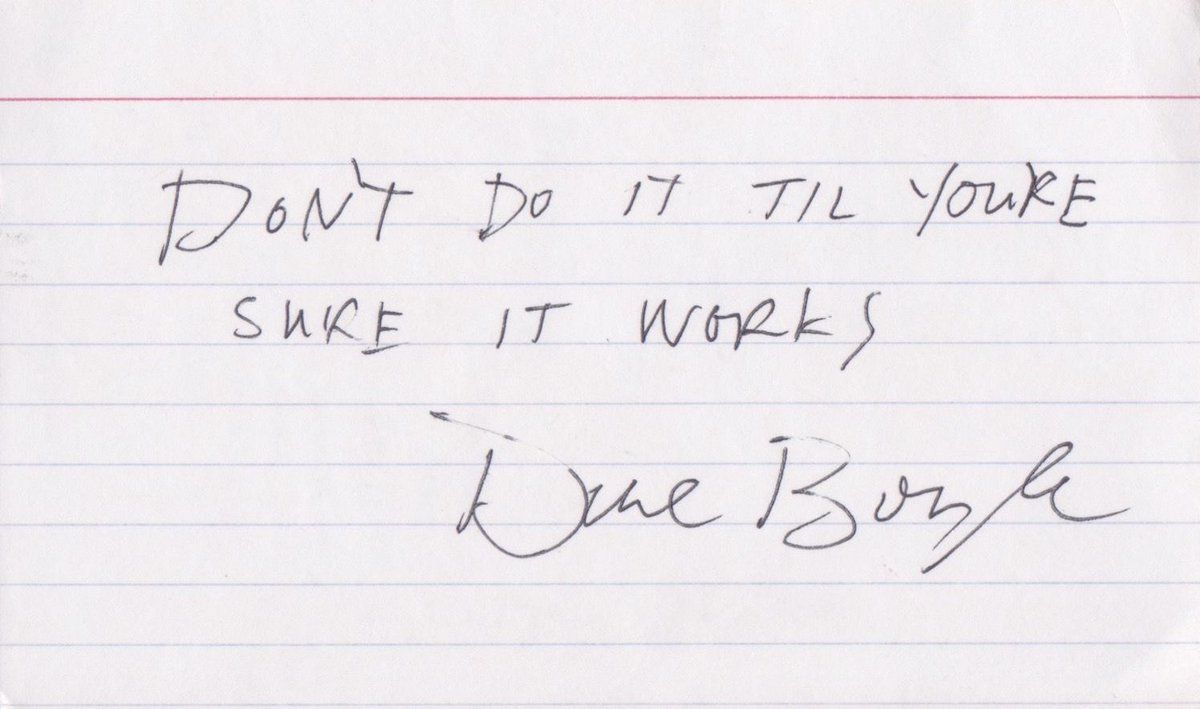 DON'T DO IT TIL YOU'RE
SURE IT WORKS
Dave Boyle